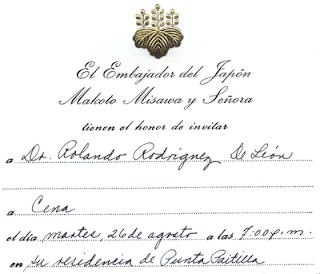 El Embajador del Japón
Makoto Misawa y Señora
tienen el honor de invitar
a Dr. Rolando Rodríguez De León
a Cena
el día martes, 26 de agosto a las 7:00 p.m.
en su residencia de Punta Paitilla